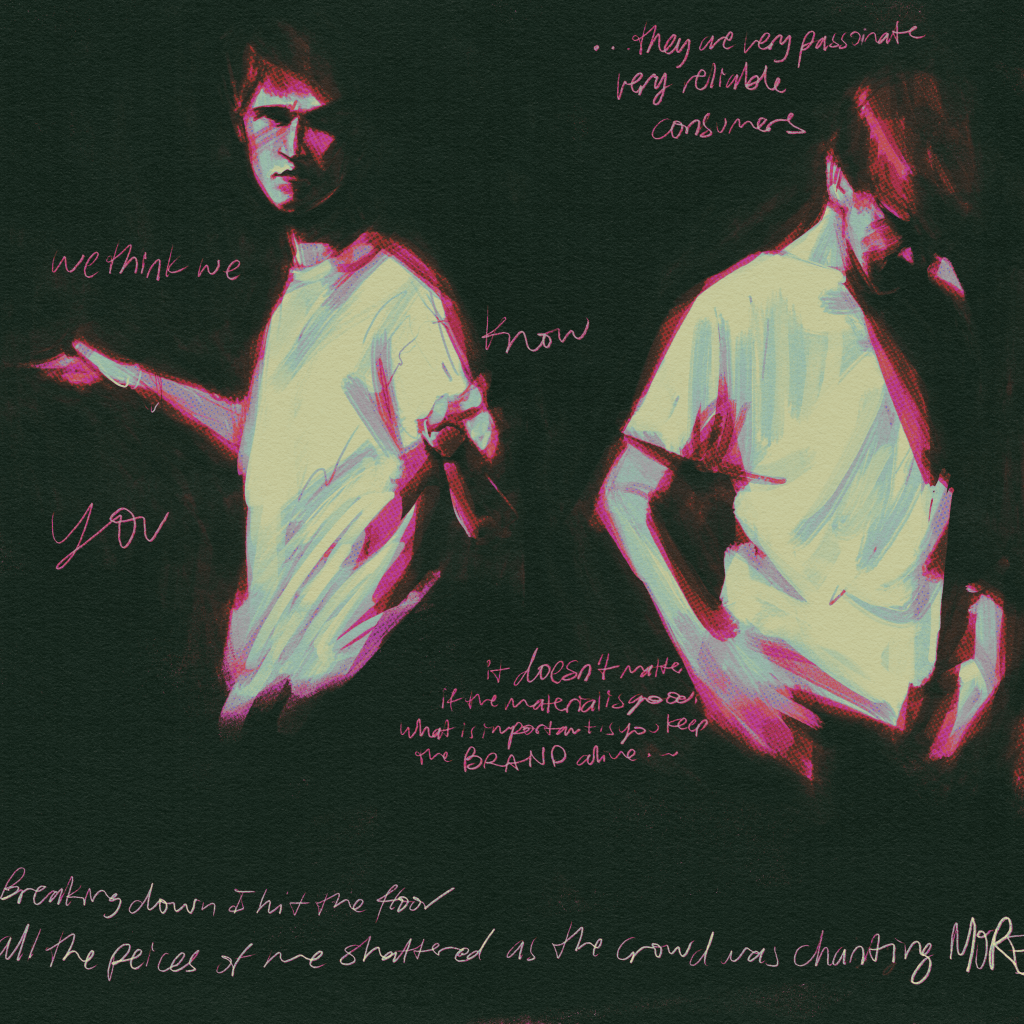 ...they are very passoinate
very reliable
consumers
we think we
know
you
it doesn't matter
if the material is good,
what is important is you keep
the BRAND alive...
Breaking down I hit the floor
all the peices of me shattered as the crowd was chanting MORE